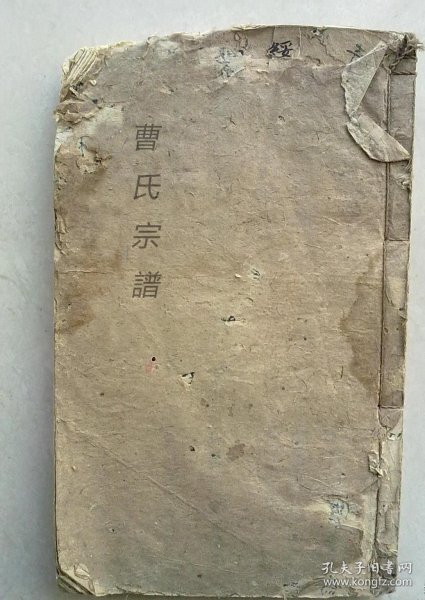 綏
曹氏宗譜
孔夫子旧书网
www.kongfz.com